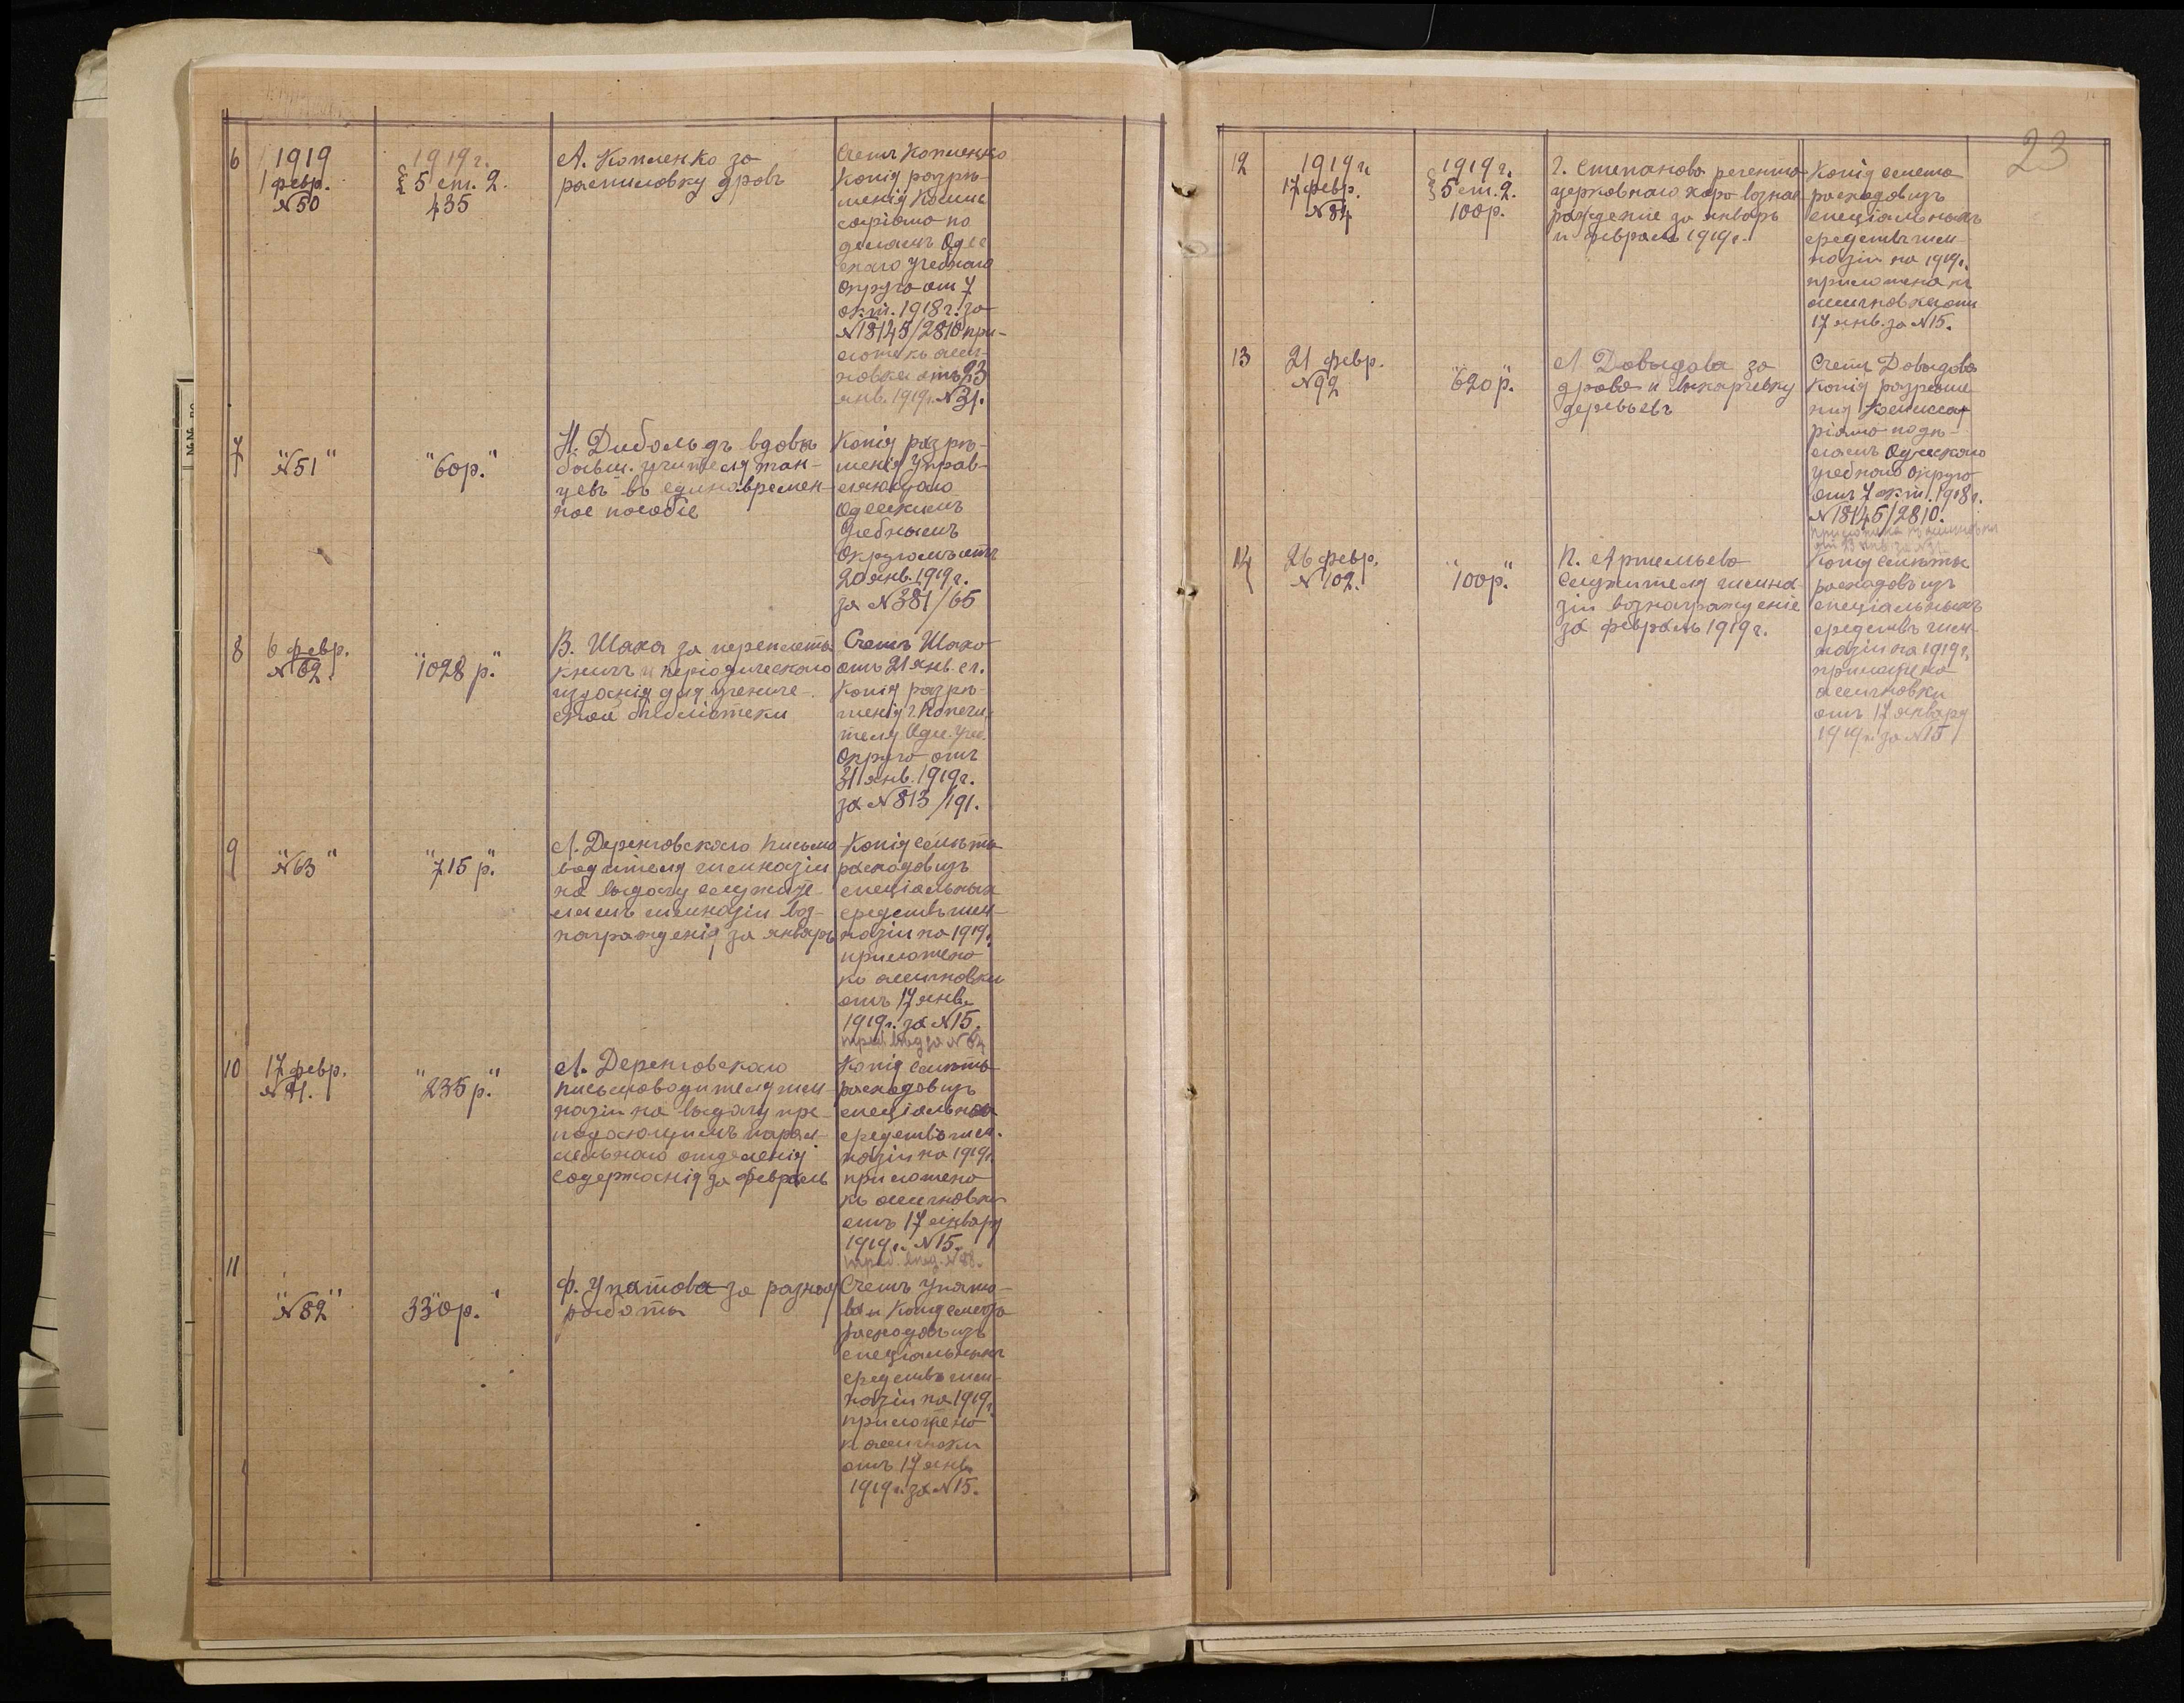 6
1919
1 февр.
№50
1919 г.
§ 5 ст. 2.
435
А. Коппенко за
распиловку дровъ
Счетъ Коппенко
Копія разрѣ-
шенія Комис
саріата по
деламъ Одес
скаго Учебнаго
Округа от 7
окт. 1918 г. за
№18145/2810 при-
ложе къ ассиг-
новке отъ 23
янв. 1919 г. №31.
7
"№51"
"60р."
Н. Дибольдъ вдовѣ
бывш. учителя тан-
цевъ въ единовремен-
ное пособіе
Копія разрѣ-
шенія Управ-
ляющаго
Одесскимъ
Учебнымъ
Округомъ отъ
20 янв. 1919 г.
за №381/65
8
6 февр.
№62.
"1028 р."
В. Шака за переплетъ
книгъ и періодическаго
изданія для учениче-
ской библіотеки
Счетъ Шака
отъ 21 янв. с.г.
Копія разрѣ-
шенія г. Попечи-
теля Одес. Уч.
Округа отъ
31 янв. 1919 г.
за №813/191.
9
"№63"
"715 р."
А. Деренговскаго письмо
водителя гимназіи
на выдачу служите-
лямъ гимназіи воз-
награжденія за январь
Копія смѣты
расходовъ изъ
спеціальныхъ
средствъ гим-
назіи на 1919 г.
приложено
къ ассигновки
отъ 17 янв.
1919 г. за №15.
10
17 февр.
№81.
"235 р."
А. Деренговскаго
письмоводителя гим
назіи на выдачу пре-
подающимъ парал-
лельнаго отделенія
содержанія за февраль
Копія смѣты
расходовъ изъ
спеціальныхъ
средствъ гим.
назіи на 1919 г.
приложено
къ ассигновки
отъ 17 января
1919 г. №15.
11
"№82"
330р."
Ф. Упатова за разныя
работы
Счетъ Упато-
ва и Копія смета
расходовъ изъ
спеціальныхъ
средствъ гим-
назіи на 1919 г.
приложено
к ассигновки
отъ 17 янв.
1919 г. за №15.
23
12
1919 г.
17 февр.
№84
1919 г.
§ 5 ст. 2.
100р.
Г. Степанова регента
церковнаго хора вознаг
ражденіе за январь
и февраль 1919 г.
Копія смета
расходовъ изъ
спеціальныхъ
средствъ гим-
назіи на 1919 г.
приложена къ
ассигновке отъ
17 янв. за №15.
13
21 февр.
№92
"620р."
А. Довыдова за
дрова и выкарчевку
деревьевъ
Счетъ Довыдова
Копія разреше
нія Комиссар
ріата по дѣ-
ламъ Одесскаго
Учебнаго Округа
отъ 7 окт. 1918 г.
№18145/2810.
14
26 февр.
№102.
"100р."
П. Артемьева
служителя гимна
зіи вознагражденіе
за февраль 1919 г.
Копія смѣты
расходовъ изъ
спеціальныхъ
средствъ гим-
назіи на 1919 г.
приложена
ассигновки
отъ 17 января
1919 г. за №15